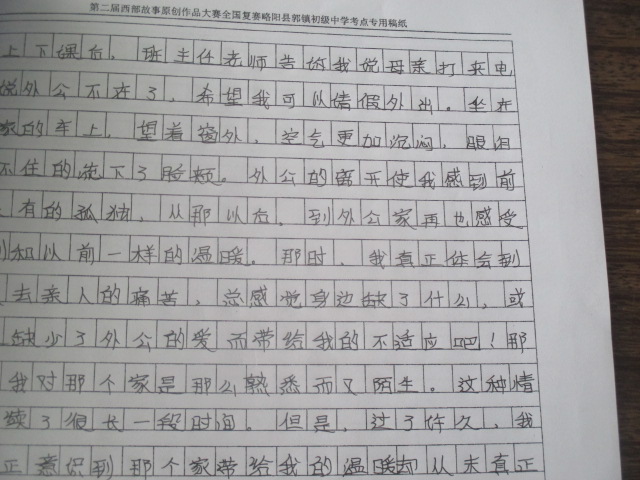 第二届西部故事原创作品大赛全国复赛略阳县郭镇初级中学考点专用稿纸
上下课后，班主任老师告诉我说母亲打来电
说外公不在了，希望我可以请假外出。坐在
家的车上，望着窗外，空气更加沉闷，眼泪
不住的流下了脸颊。外公的离开使我感到前
有的孤独，从那以后，到外公家再也感受
到和以前一样的温暖。那时，我真正体会到
去亲人的痛苦，总感觉身边缺了什么，或
缺少了外公的爱而带给我的不适应吧！那
我对那个家是那么熟悉而又陌生。这种情
续了很长一段时间。但是，过了许久，我
正意识到那个家带给我的温暖却从未真正